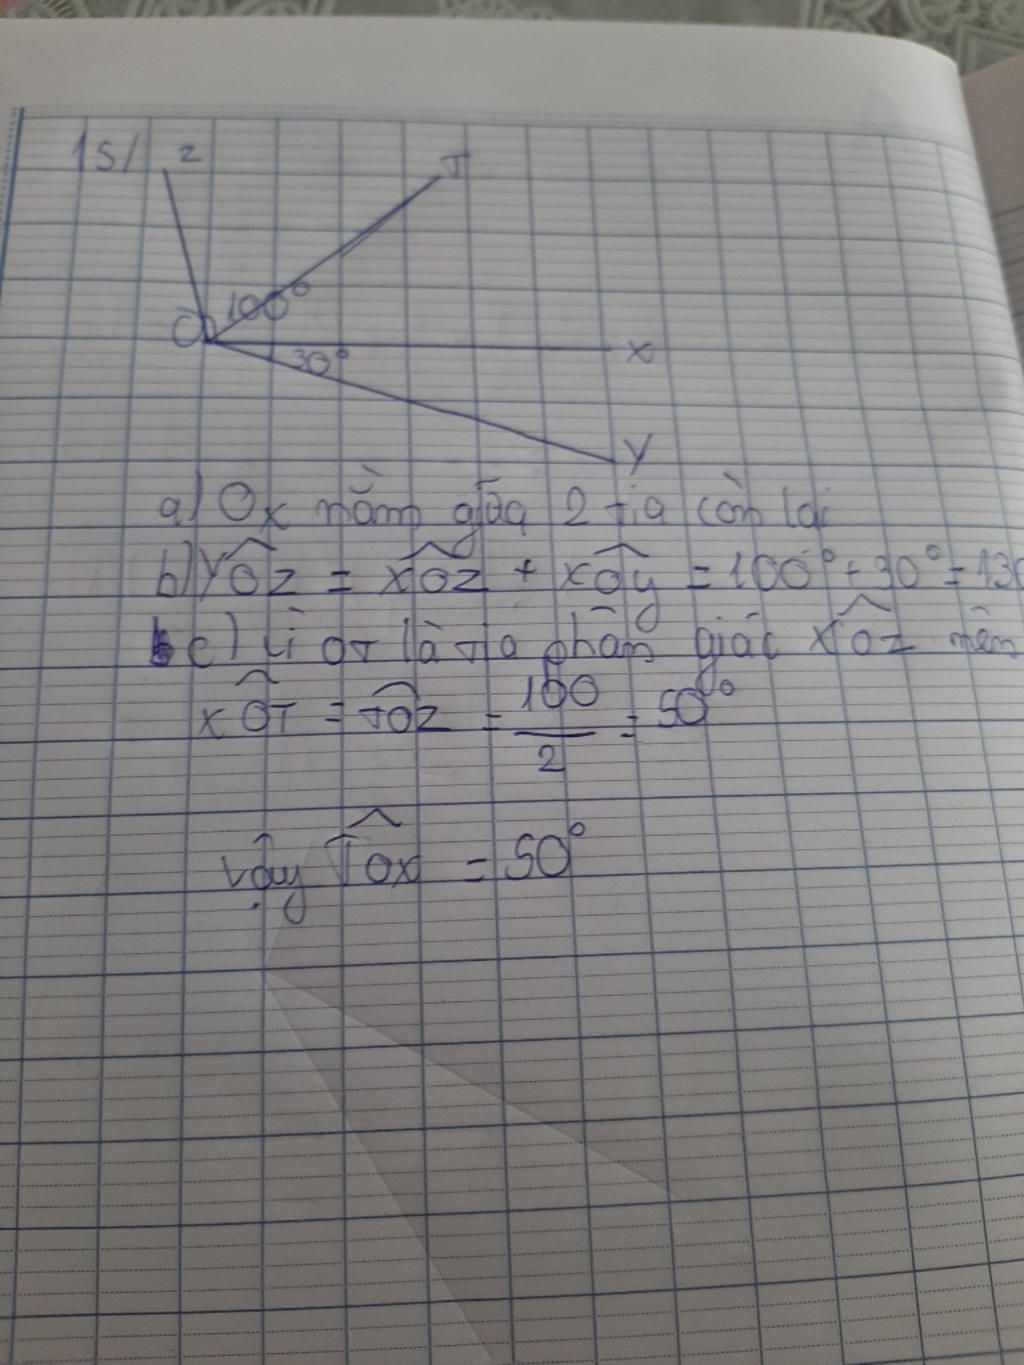 15/ z
T
O 100°
x
30°
y
a) Ox nằm giữa 2 tia còn lại
b) yOz = xOz + xOy = 100° + 30° = 130
c) Vì OT là tia phân giác xOz nên
xOT = TOz = 100/2 = 50°
Vậy TOx = 50°